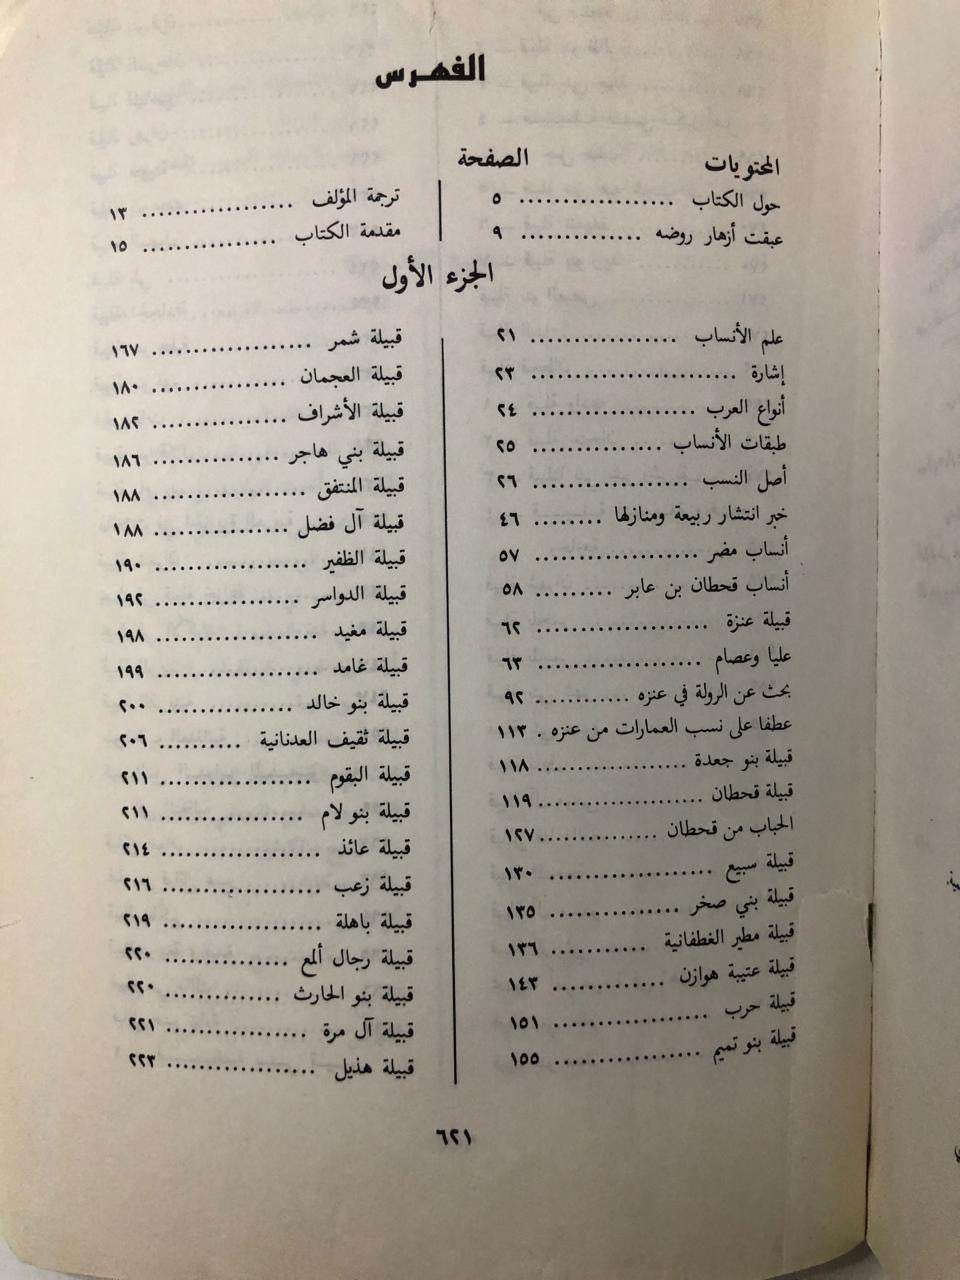 الفهرس
المحتويات الصفحة
حول الكتاب .................. ٥
عبقت أزهار روضه .............. ٩
ترجمة المؤلف .................. ١٣
مقدمة الكتاب ................ ١٥
الجزء الأول
علم الأنساب ................. ٢١
إشارة ........................ ٢٣
أنواع العرب ................... ٢٤
طبقات الأنساب ............... ٢٥
أصل النسب .................. ٢٦
خبر انتشار ربيعة ومنازلها ........ ٤٦
أنساب مضر ................... ٥٧
أنساب قحطان بن عابر ......... ٥٨
قبيلة عنزة .................... ٦٢
عليا وعصام ................... ٦٣
بحث عن الرولة في عنزه ........... ٩٢
عطفا على نسب العمارات من عنزه . ١١٣
قبيلة بنو جعدة .................. ١١٨
قبيلة قحطان .................... ١١٩
الحباب من قحطان ............... ١٢٧
قبيلة سبيع ................... ١٣٠
قبيلة بني صخر ............... ١٣٥
قبيلة مطير الغطفانية ........... ١٣٦
قبيلة عتيبة هوازن ............. ١٤٣
قبيلة حرب ................... ١٥١
قبيلة بنو تميم ................. ١٥٥
قبيلة شمر ................... ١٦٧
قبيلة العجمان ................ ١٨٠
قبيلة الأشراف ................ ١٨٢
قبيلة بني هاجر ............... ١٨٦
قبيلة المنتفق .................. ١٨٨
قبيلة آل فضل ................ ١٨٨
قبيلة الظفير .................. ١٩٠
قبيلة الدواسر ................. ١٩٢
قبيلة مغيد ................... ١٩٨
قبيلة غامد ................... ١٩٩
قبيلة بنو خالد ................ ٢٠٠
قبيلة ثقيف العدنانية .......... ٢٠٦
قبيلة البقوم .................. ٢١١
قبيلة بنو لام ................. ٢١١
قبيلة عائذ ................... ٢١٤
قبيلة زعب ................... ٢١٦
قبيلة باهلة ................... ٢١٩
قبيلة رجال ألمع ............... ٢٢٠
قبيلة بنو الحارث .............. ٢٢٠
قبيلة آل مرة ................. ٢٢١
قبيلة هذيل .................. ٢٢٣
٦٢١